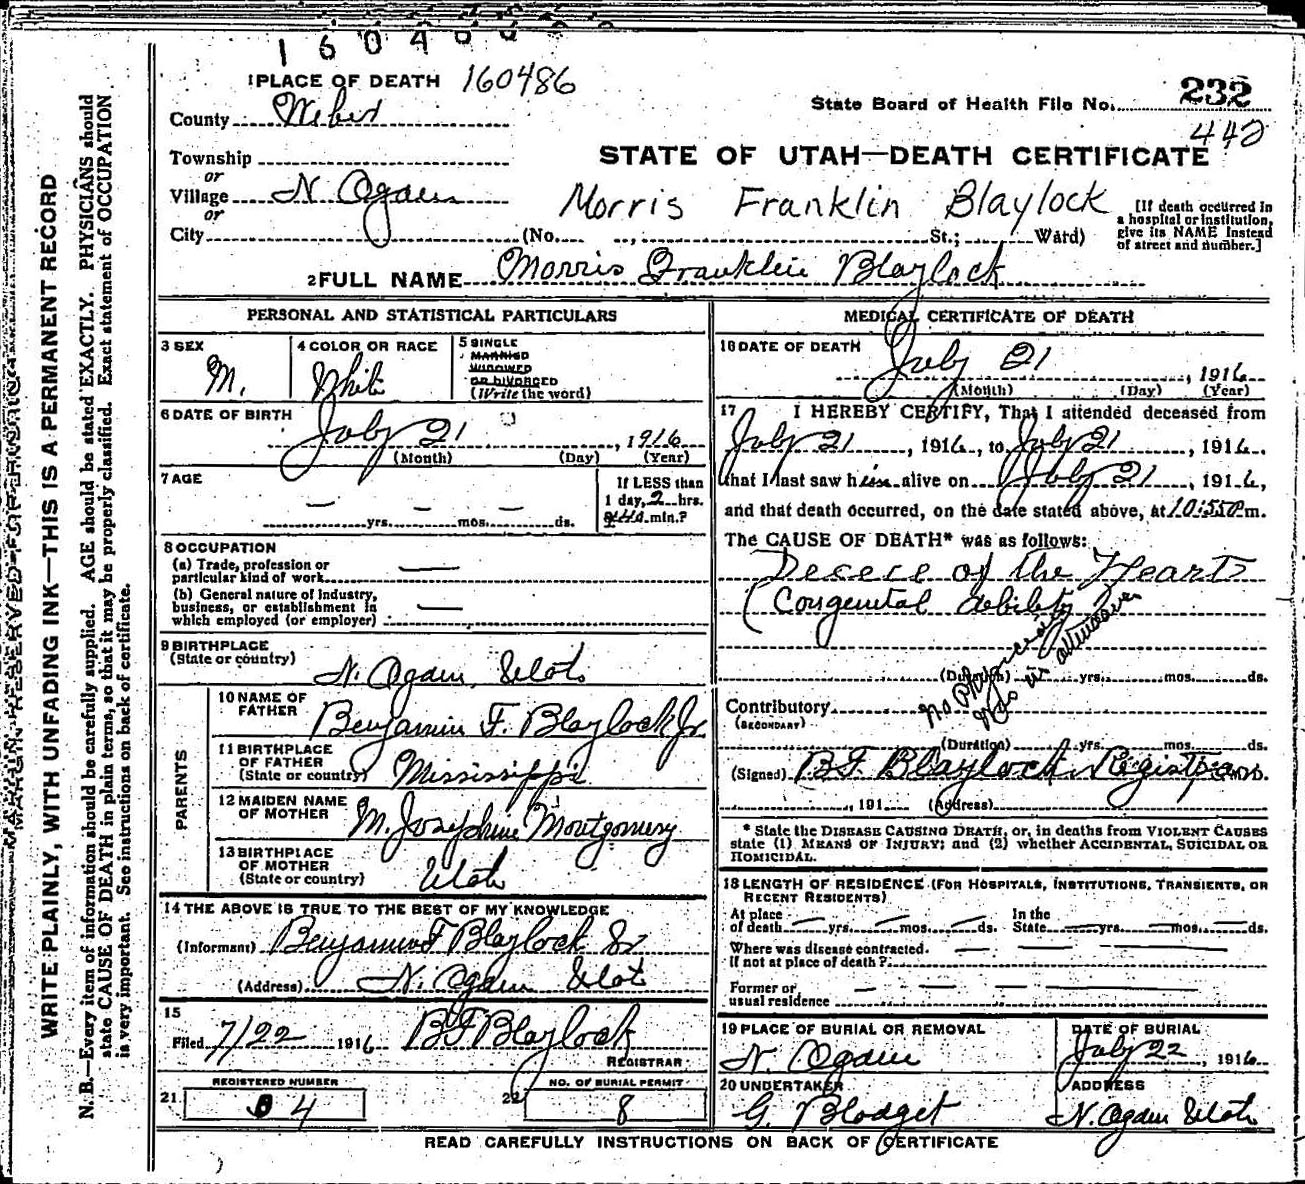 1 6 0 4
1 PLACE OF DEATH 160486
232
State Board of Health File No.
442
County Weber
STATE OF UTAH—DEATH CERTIFICATE
Township
or
Village N Ogden
Morris Franklin Blaylock
or
City (No. , St.; Ward)
[If death occurred in
a hospital or institution,
give its NAME instead
of street and number.]
2 FULL NAME Morris Franklin Blaylock
PERSONAL AND STATISTICAL PARTICULARS
3 SEX
M.
4 COLOR OR RACE
White
5 SINGLE
MARRIED
WIDOWED
OR DIVORCED
(Write the word)
6 DATE OF BIRTH
July 21, 1916
(Month) (Day) (Year)
7 AGE
— yrs. — mos. — ds.
If LESS than
1 day, 2 hrs.
min.?
8 OCCUPATION
(a) Trade, profession or
particular kind of work —
(b) General nature of industry,
business, or establishment in
which employed (or employer) —
9 BIRTHPLACE
(State or country)
N. Ogden, Utah
PARENTS
10 NAME OF
FATHER
Benjamin F. Blaylock Jr.
11 BIRTHPLACE
OF FATHER
(State or country) Mississippi
12 MAIDEN NAME
OF MOTHER M. Josephine Montgomery
13 BIRTHPLACE
OF MOTHER
(State or country) Utah
14 THE ABOVE IS TRUE TO THE BEST OF MY KNOWLEDGE
(Informant) Benjamin F Blaylock
(Address) N. Ogden Utah
15
Filed 7/22 1916 BF Blaylock
REGISTRAR
21 REGISTERED NUMBER
4
22 NO. OF BURIAL PERMIT
8
MEDICAL CERTIFICATE OF DEATH
16 DATE OF DEATH
July 21, 1916
(Month) (Day) (Year)
17 I HEREBY CERTIFY, That I attended deceased from
July 21, 1916, to July 21, 1916.
that I last saw him alive on July 21, 1916,
and that death occurred, on the date stated above, at 10:55 P.m.
The CAUSE OF DEATH* was as follows:
Decece of the Heart
(Congenital debility)
No Physician
was in attendance
(Duration) yrs. mos. ds.
Contributory
(SECONDARY)
(Duration) yrs. mos. ds.
(Signed) B.F. Blaylock Registrar M.D.
, 191 (Address)
* State the DISEASE CAUSING DEATH, or, in deaths from VIOLENT CAUSES
state (1) MEANS OF INJURY; and (2) whether ACCIDENTAL, SUICIDAL OR
HOMICIDAL.
18 LENGTH OF RESIDENCE (FOR HOSPITALS, INSTITUTIONS, TRANSIENTS, OR
RECENT RESIDENTS)
At place
of death — yrs. — mos. — ds.
In the
State — yrs. — mos. — ds.
Where was disease contracted.
if not at place of death? — — —
Former or
usual residence — — —
19 PLACE OF BURIAL OR REMOVAL
N. Ogden
DATE OF BURIAL
July 22, 1916
20 UNDERTAKER
G. Blodget
ADDRESS
N. Ogden Utah
READ CAREFULLY INSTRUCTIONS ON BACK OF CERTIFICATE
MARGIN RESERVED FOR BINDING
WRITE PLAINLY, WITH UNFADING INK—THIS IS A PERMANENT RECORD
N. B.—Every item of information should be carefully supplied. AGE should be stated EXACTLY. PHYSICIANS should
state CAUSE OF DEATH in plain terms, so that it may be properly classified. Exact statement of OCCUPATION
is very important. See instructions on back of certificate.